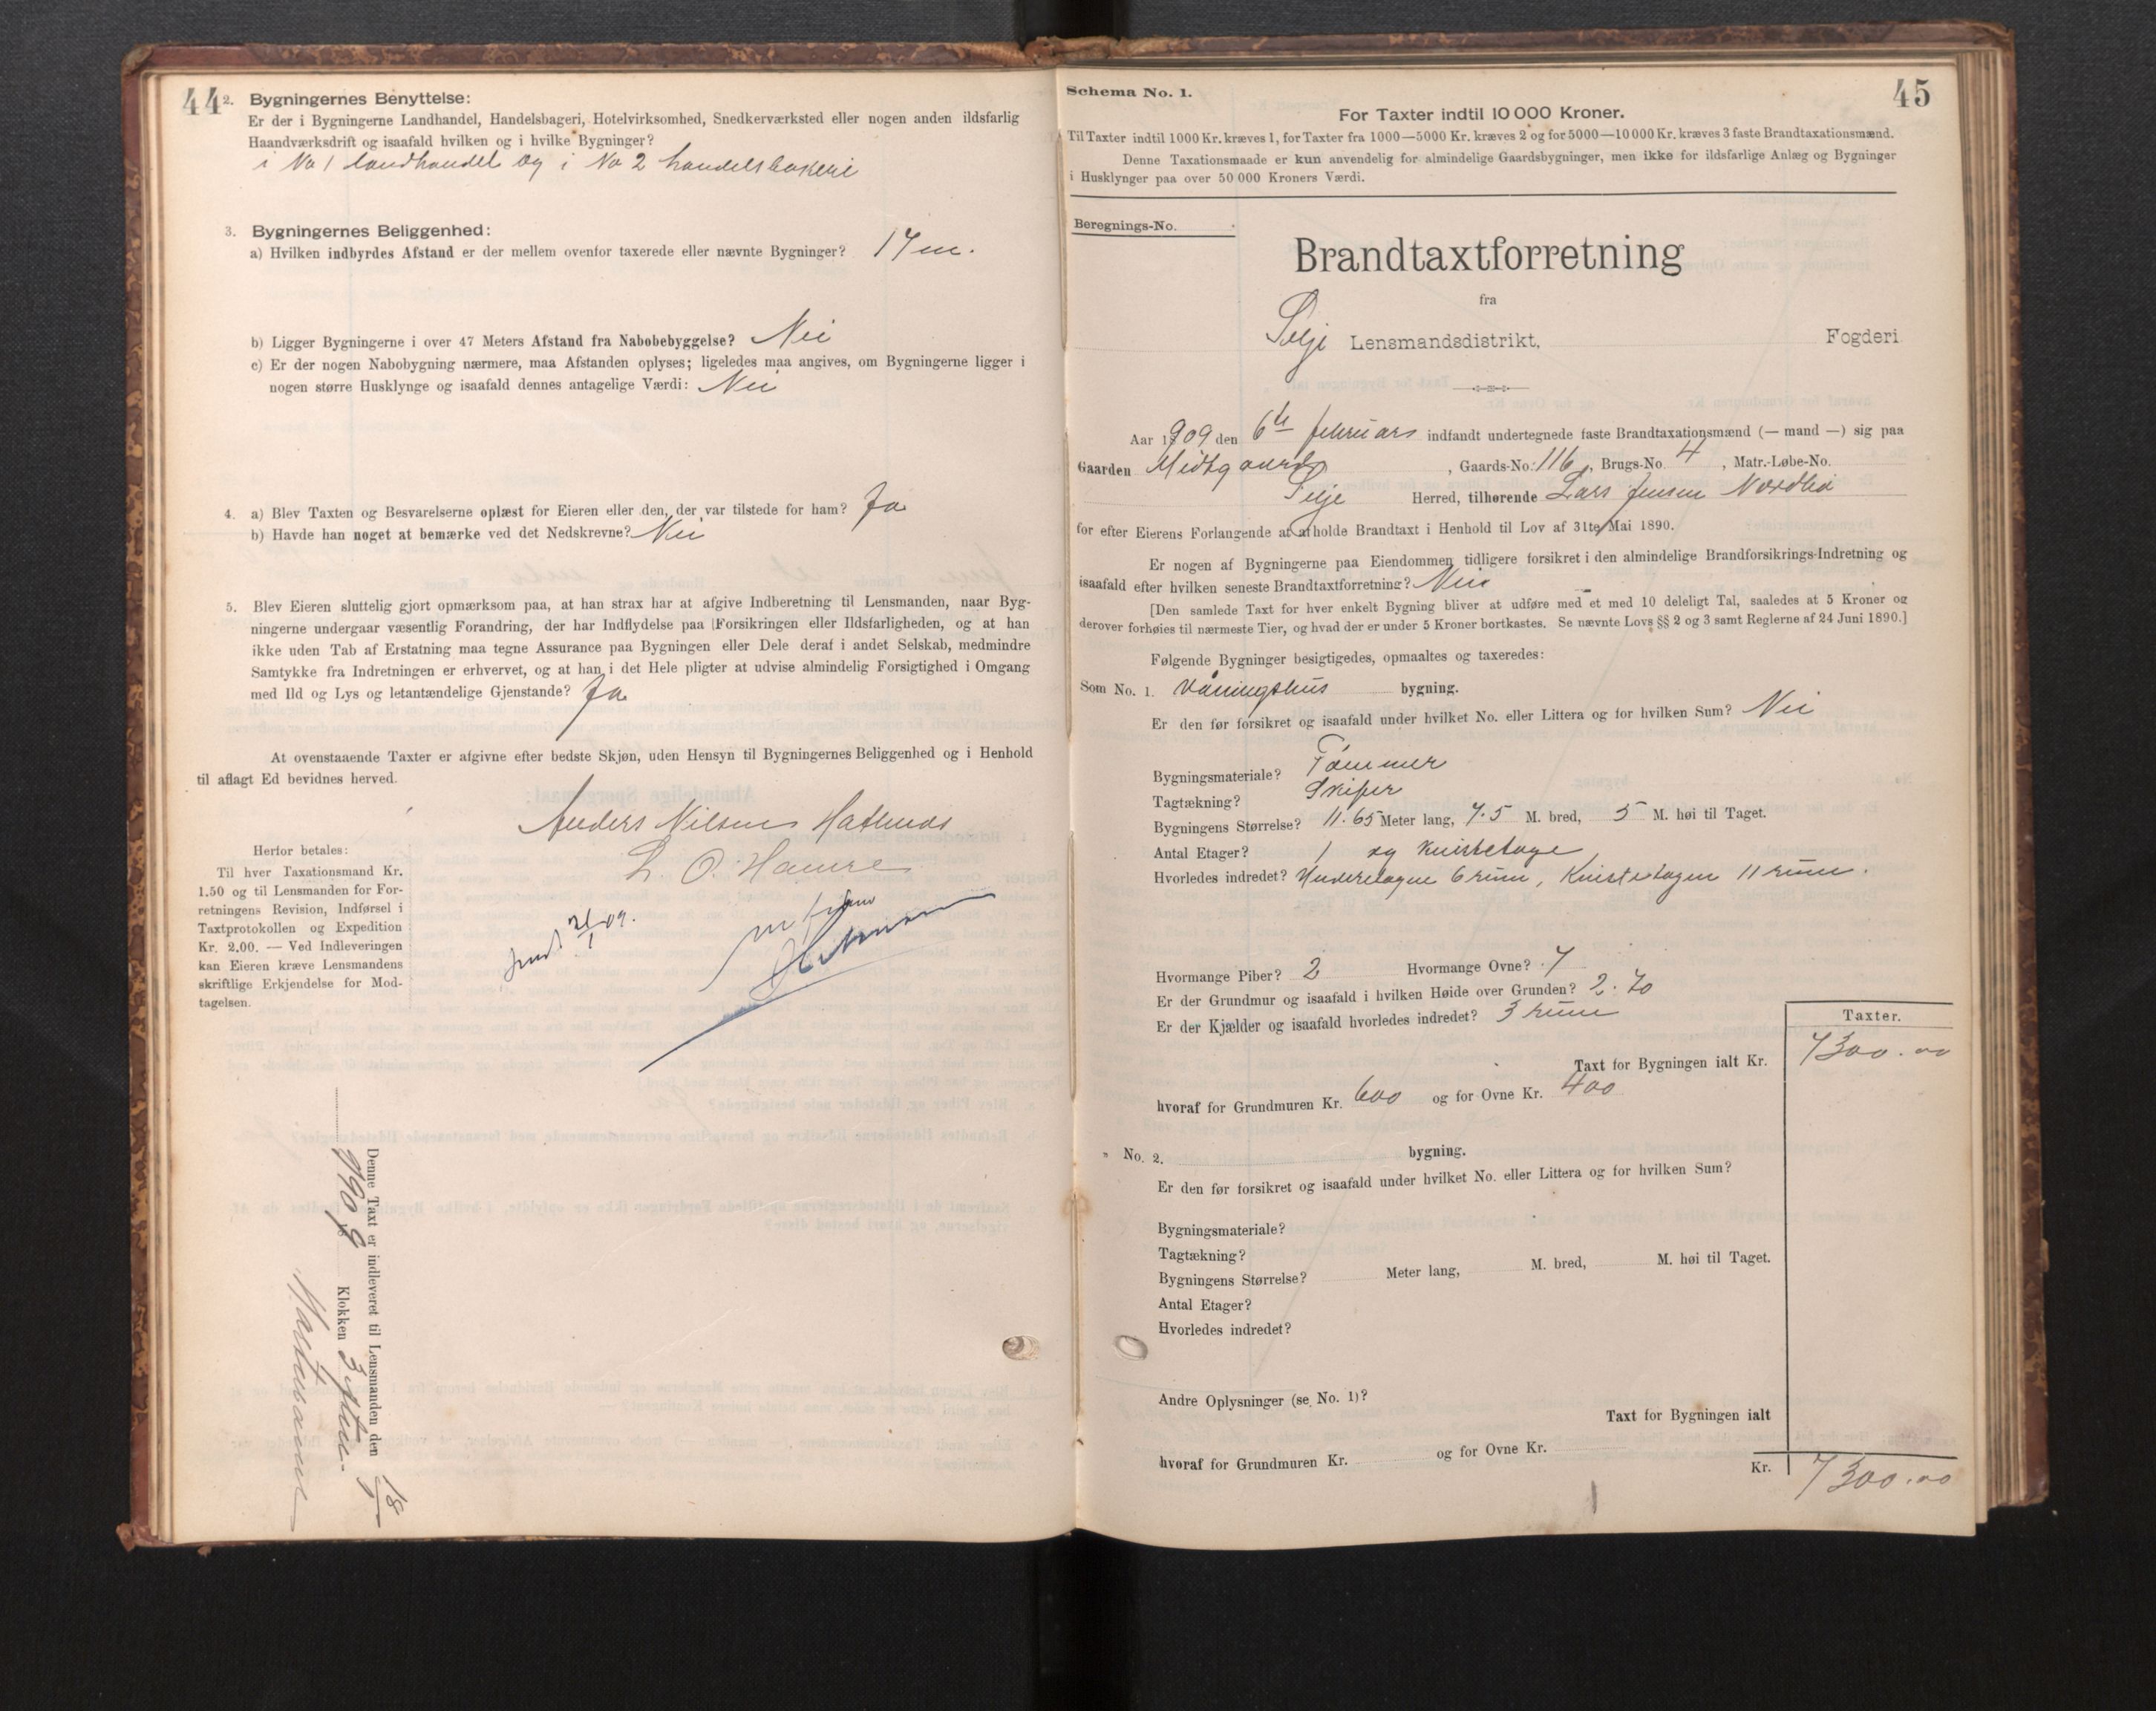 44
2. Bygningernes Benyttelse:
Er der i Bygningerne Landhandel, Handelsbageri, Hotelvirksomhed, Snedkerværksted eller nogen anden ildsfarlig
Haandværksdrift og isaafald hvilken og i hvilke Bygninger?
i No 1 landhandel og i No 2 handelsbakeri
3. Bygningernes Beliggenhed:
a) Hvilken indbyrdes Afstand er der mellem ovenfor taxerede eller nævnte Bygninger? 17 m.
b) Ligger Bygningerne i over 47 Meters Afstand fra Nabobebyggelse? Nei
c) Er der nogen Nabobygning nærmere, maa Afstanden oplyses; ligeledes maa angives, om Bygningerne ligger i
nogen større Husklynge og isaafald dennes antagelige Værdi: Nei
4. a) Blev Taxten og Besvarelserne oplæst for Eieren eller den, der var tilstede for ham? Ja
b) Havde han noget at bemærke ved det Nedskrevne? Nei
5. Blev Eieren sluttelig gjort opmærksom paa, at han strax har at afgive Indberetning til Lensmanden, naar Byg-
ningerne undergaar væsentlig Forandring, der har Indflydelse paa Forsikringen eller Ildsfarligheden, og at han
ikke uden Tab af Erstatning maa tegne Assurance paa Bygningen eller Dele deraf i andet Selskab, medmindre
Samtykke fra Indretningen er erhvervet, og at han i det Hele pligter at udvise almindelig Forsigtighed i Omgang
med Ild og Lys og letantændelige Gjenstande? Ja
At ovenstaaende Taxter er afgivne efter bedste Skjøn, uden Hensyn til Bygningernes Beliggenhed og i Henhold
til aflagt Ed bevidnes herved.
Anders Nilsen Hatlenes
L. O. Hamre
Herfor betales:
Til hver Taxationsmand Kr.
1.50 og til Lensmanden for For-
retningens Revision, Indførsel i
Taxtprotokollen og Expedition
Kr. 2.00. — Ved Indleveringen
kan Eieren kræve Lensmandens
skriftlige Erkjendelse for Mod-
tagelsen.
Denne Taxt er indleveret til Lensmanden den 18/1
1909 Klokken 3 eftm.
Hartmann
45
Schema No. 1.
For Taxter indtil 10 000 Kroner.
Til Taxter indtil 1000 Kr. kræves 1, for Taxter fra 1000—5000 Kr. kræves 2 og for 5000—10 000 Kr. kræves 3 faste Brandtaxationsmænd.
Denne Taxationsmaade er kun anvendelig for almindelige Gaardsbygninger, men ikke for ildsfarlige Anlæg og Bygninger
i Husklynger paa over 50 000 Kroners Værdi.
Beregnings-No.
Brandtaxtforretning
fra
Selje Lensmandsdistrikt, Fogderi
Aar 1909 den 6te februar indfandt undertegnede faste Brandtaxationsmænd (— mand —) sig paa
Gaarden Midtgaard, Gaards-No. 116, Brugs-No. 4, Matr.-Løbe-No.
Selje Herred, tilhørende Lars Jensen Nordbø
for efter Eierens Forlangende at afholde Brandtaxt i Henhold til Lov af 31te Mai 1890.
Er nogen af Bygningerne paa Eiendommen tidligere forsikret i den almindelige Brandforsikrings-Indretning og
isaafald efter hvilken seneste Brandtaxtforretning? Nei
[Den samlede Taxt for hver enkelt Bygning bliver at udføre med et med 10 deleligt Tal, saaledes at 5 Kroner og
derover forhøies til nærmeste Tier, og hvad der er under 5 Kroner bortkastes. Se nævnte Lovs §§ 2 og 3 samt Reglerne af 24 Juni 1890.]
Følgende Bygninger besigtigedes, opmaaltes og taxeredes:
Som No. 1. Våningshus bygning.
Er den før forsikret og isaafald under hvilket No. eller Littera og for hvilken Sum? Nei
Bygningsmateriale? Tømmer
Tagtækning? Skifer
Bygningens Størrelse? 11.65 Meter lang, 7.5 M. bred, 5 M. høi til Taget.
Antal Etager? 1 og kvistetage
Hvorledes indredet? Underetagen 6 rum, Kvistetagen 11 rum.
Hvormange Piber? 2 Hvormange Ovne? 7
Er der Grundmur og isaafald i hvilken Høide over Grunden? 2.70
Er der Kjælder og isaafald hvorledes indredet? 3 rum
Taxter.
Taxt for Bygningen ialt Kr. 7300.00
hvoraf for Grundmuren Kr. 600 og for Ovne Kr. 400
" No. 2. bygning.
Er den før forsikret og isaafald under hvilket No. eller Littera og for hvilken Sum?
Bygningsmateriale?
Tagtækning?
Bygningens Størrelse? Meter lang, M. bred, M. høi til Taget.
Antal Etager?
Hvorledes indredet?
Andre Oplysninger (se No. 1)?
Taxt for Bygningen ialt
hvoraf for Grundmuren Kr. og for Ovne Kr.
Kr. 7300.00